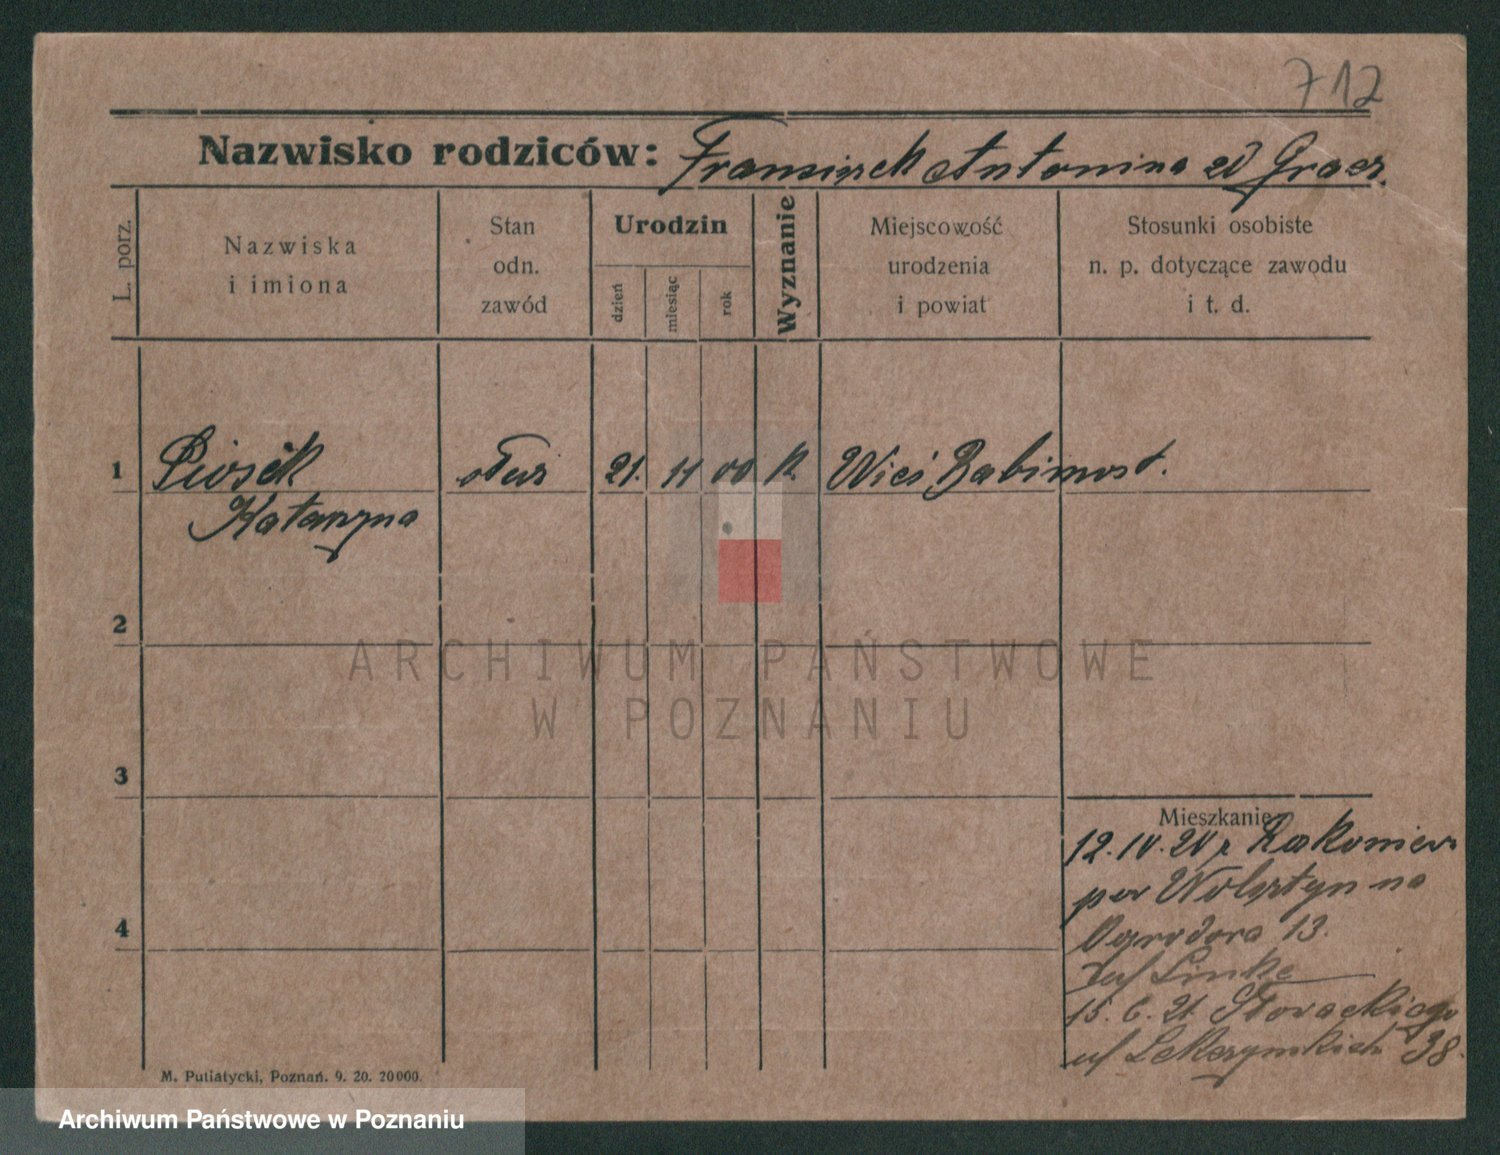 712
Nazwisko rodziców: Franciszek Antonina zd Gracz.
L. porz.
Nazwiska
i imiona
Stan
odn.
zawód
Urodzin
dzień
miesiąc
rok
Wyznanie
Miejscowość
urodzenia
i powiat
Stosunki osobiste
n. p. dotyczące zawodu
i t. d.
1 Piosek służ 21. 11 00 k. Wieś Babimost.
Katarzyna
2
3
4
ARCHIWUM PAŃSTWOWE
W POZNANIU
Mieszkanie
12.IV.20 z
pow Wolsztyn na
Ogrodowa 13.
Linke
15. 6. 21. Słowackiego
38.
M. Putiatycki, Poznań. 9. 20. 20000.
Archiwum Państwowe w Poznaniu